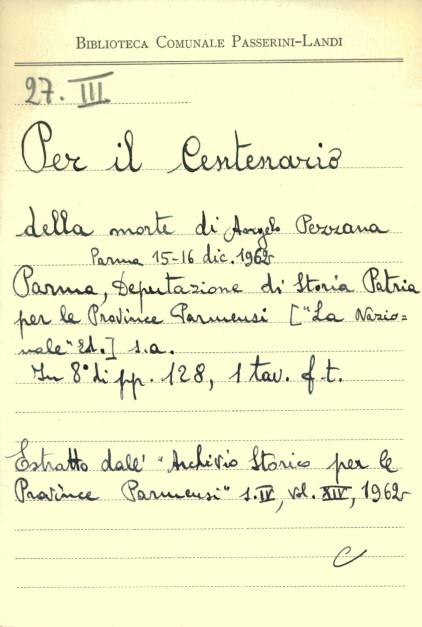 BIBLIOTECA COMUNALE PASSERINI-LANDI
27. III
Per il Centenario
della morte di Angelo Pezzana
Parma 15-16 dic. 1962
Parma, Deputazione di Storia Patria
per le Province Parmensi ["La Nazio=
nale" Ed.] s.a.
In 8° di pp. 128, 1 tav. f.t.
Estratto dale' "Archivio Storico per le
Province Parmensi" s. IV, vol. XIV, 1962
C